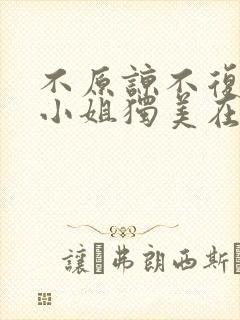 不原諒不復
小姐獨美在
讓·弗朗西斯·